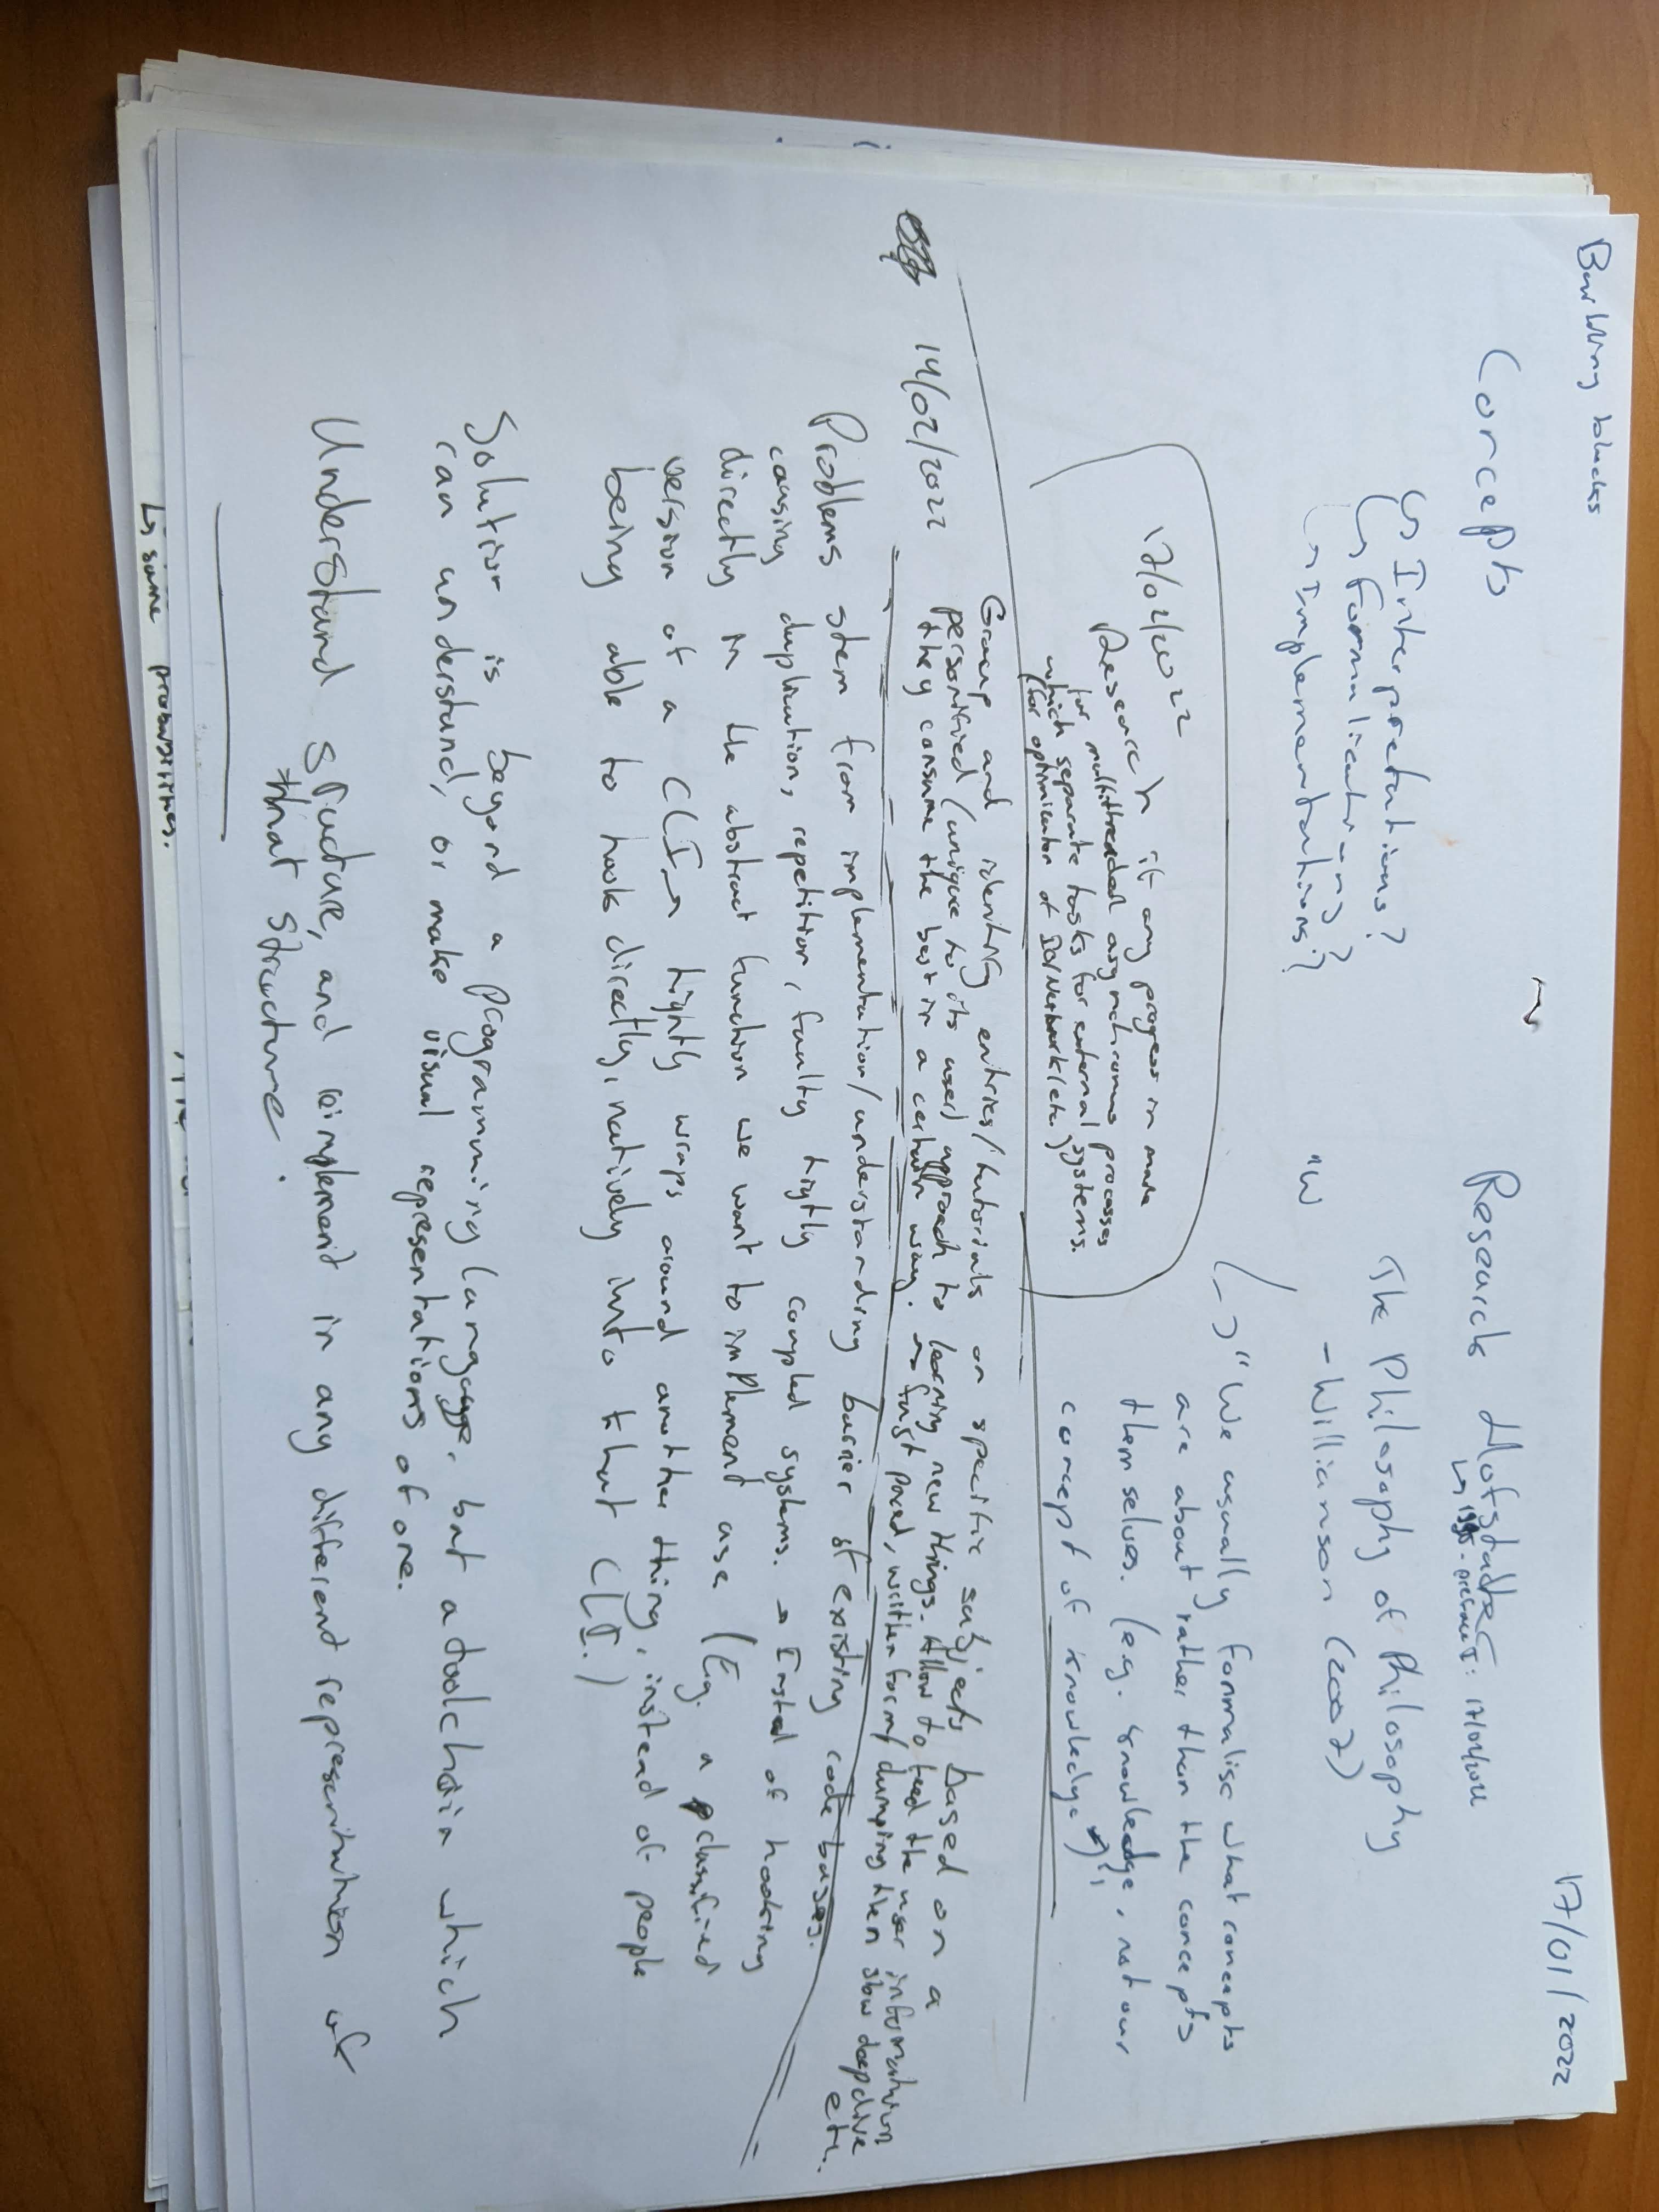 Building blocks
17/01/2022
Concepts
↳ Interpretations?
↳ Formalications?
↳ Implementations?
Research Hofstadter
↳ 1995 - present: 17/01/2022
The Philosophy of Philosophy
- Williamson (2007)
"W
↳ "We usually formalise what concepts
are about rather than the concepts
themselves. (eg. knowledge, not our
concept of knowledge)"
17/02/2022
Research if any progress in more
for multithreaded asynchronous processes
which separate tasks for external systems.
(for optimication of
14/02/2022
Group and identity entries/tutorials on specific subjects based on a
personified (unique to its user) approach to learning new things. Allow to feed the user information
they consume the best in a certain way. → fast paced, written form/ dumping then slow deepdive
etc.
Problems stem from implementation/understanding barrier of existing code bases.
causing duplication, repetition, faulty tightly coupled systems. → Insted of hooking
directly in the abstract function we want to implement use (Eg. a classified
version of a CLI → tightly wraps around another thing, instead of people
being able to hook directly, natively into that CLI.)
Solution is beyond a programming language, but a toolchain which
can understand, or make visual representations of one.
Understand structure, and reimplement in any different representation of
that structure.
↳ same